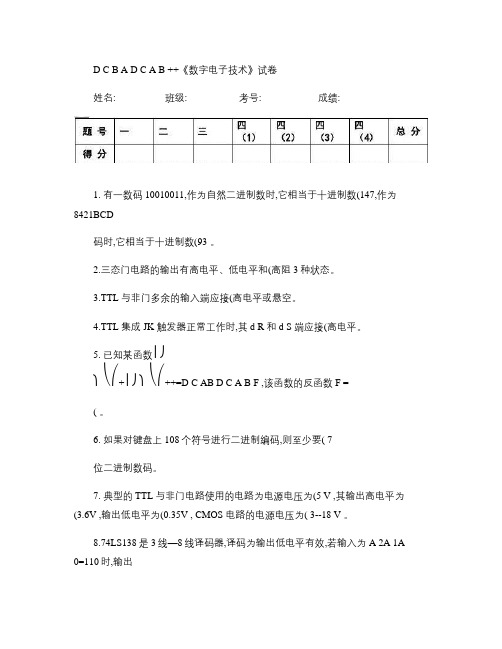 D C B A D C A B ++《数字电子技术》试卷
姓名: 班级: 考号: 成绩:
题 号 一 二 三 四（1） 四（2） 四（3） 四（4） 总 分
得 分
1. 有一数码 10010011,作为自然二进制数时,它相当于十进制数(147,作为
8421BCD
码时,它相当于十进制数(93 。
2.三态门电路的输出有高电平、低电平和(高阻 3 种状态。
3.TTL 与非门多余的输入端应接(高电平或悬空。
4.TTL 集成 JK 触发器正常工作时,其 d R 和 d S 端应接(高电平。
5. 已知某函数⎪⎭
⎫ ⎝⎛+⎪⎭⎫ ⎝⎛++=D C AB D C A B F ,该函数的反函数 F =
( 。
6. 如果对键盘上 108 个符号进行二进制编码,则至少要( 7
位二进制数码。
7. 典型的 TTL 与非门电路使用的电路为电源电压为(5 V ,其输出高电平为
(3.6V ,输出低电平为(0.35V , CMOS 电路的电源电压为( 3--18 V 。
8.74LS138 是 3 线—8 线译码器,译码为输出低电平有效,若输入为 A 2A 1A
0=110 时,输出